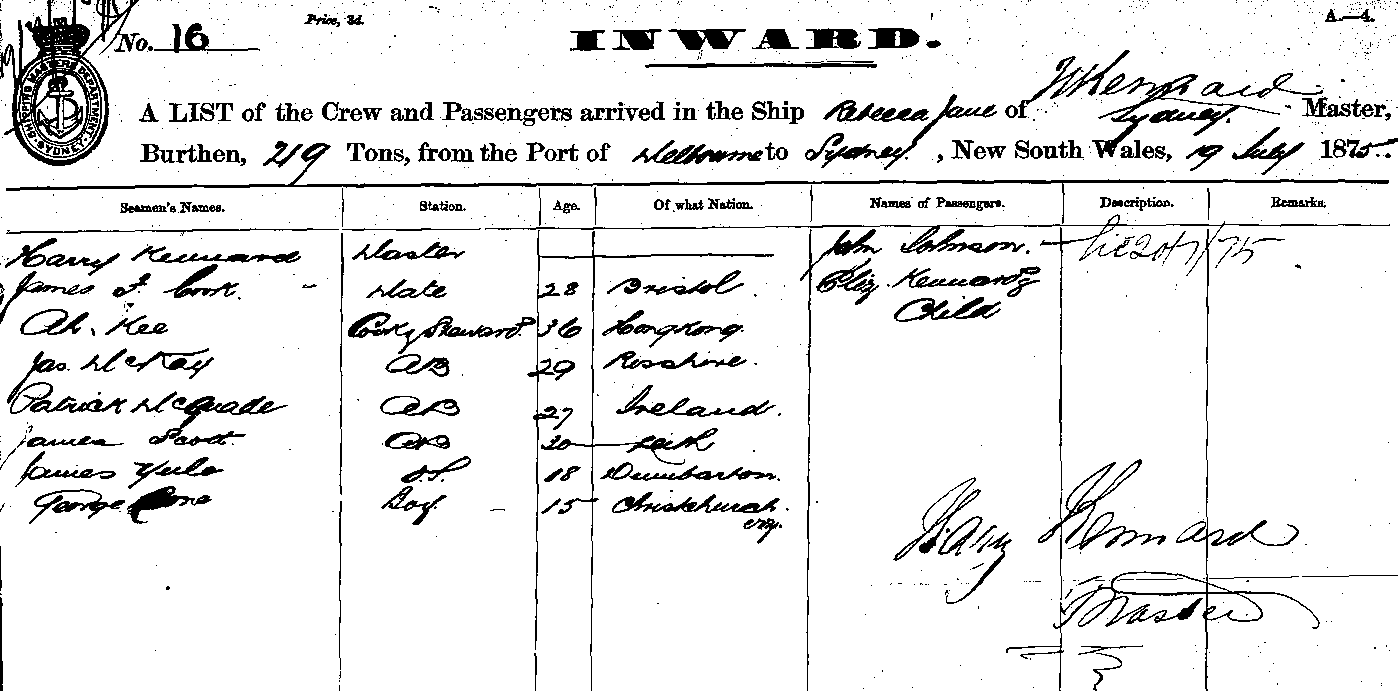 No. 16
Price, 3d.
A.—4.
INWARD.
SHIPPING MASTER'S DEPARTMENT
SYDNEY
H Kennard
A LIST of the Crew and Passengers arrived in the Ship Rebecca Jane of Sydney. Master,
Burthen, 219 Tons, from the Port of Melbourne to Sydney, New South Wales, 19 July 1875.
Seamen's Names. Station. Age. Of what Nation. Names of Passengers. Description. Remarks.
Harry Kennard Master John Johnson. 20/7/75
James F. Cook. Mate 28 Bristol. Eliz. Kennard &
Child
Ah. Kee Cook & Steward 36 Hongkong.
Jas. McKay AB 29 Rosshire.
Patrick McQuade AB 27 Ireland.
James Scott AB 20 Leith
James Yule O.S. 18 Dumbarton.
George Boy. 15 Christchurch.
Harry Kennard
Master